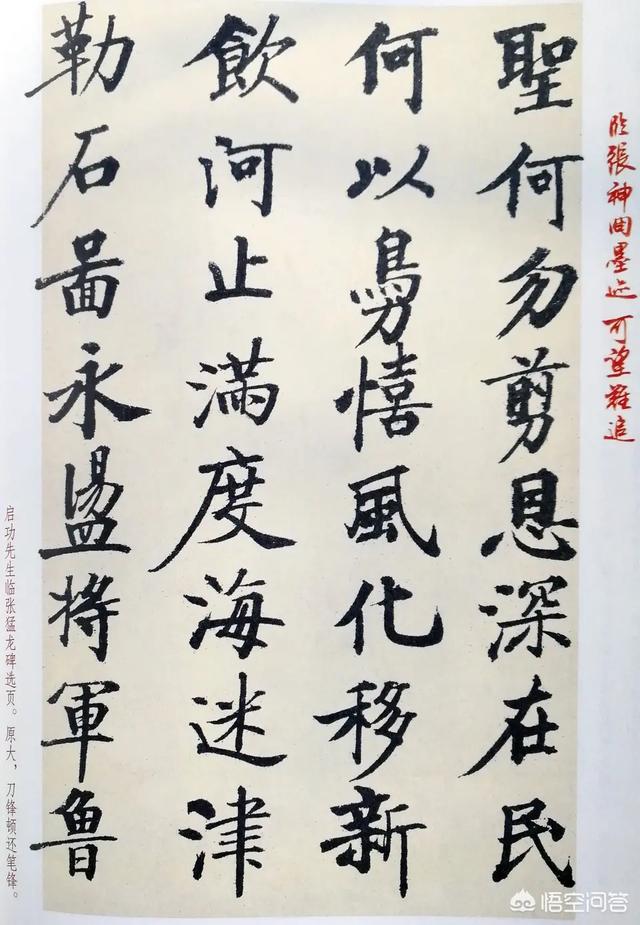 临張神冏墨迹 可望難追
聖何勿剪恩深在民
何以鳧憘風化移新
飲河止滿度海迷津
勒石啚永盪將軍魯
启功先生临张猛龙碑选页。原大，刀锋顿还笔锋。
悟空问答